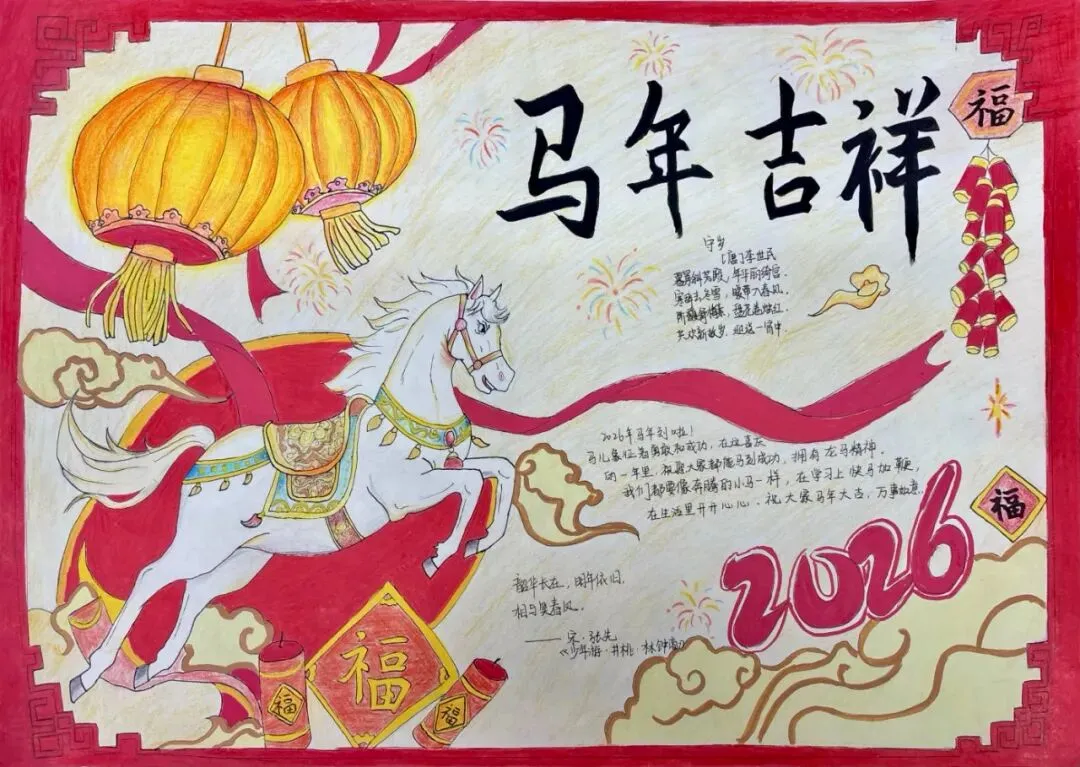 马年吉祥
福
守岁
[唐]李世民
暮景斜芳殿，年华丽绮宫.
寒辞去冬雪，暖带入春风.
阶馥舒梅素，盘花卷烛红.
共欢新故岁，迎送一宵中.
2026年马年到啦！
马儿象征着勇敢和成功，在这喜庆
的一年里，祝愿大家都能马到成功，拥有龙马精神.
我们都要像奔腾的小马一样，在学习上快马加鞭，
在生活里开开心心，祝大家马年大吉，万事如意.
福
2026
韶华长在，明年依旧.
相与笑春风.
——宋·张先
《少年游·井桃·林钟商》
福
福
福